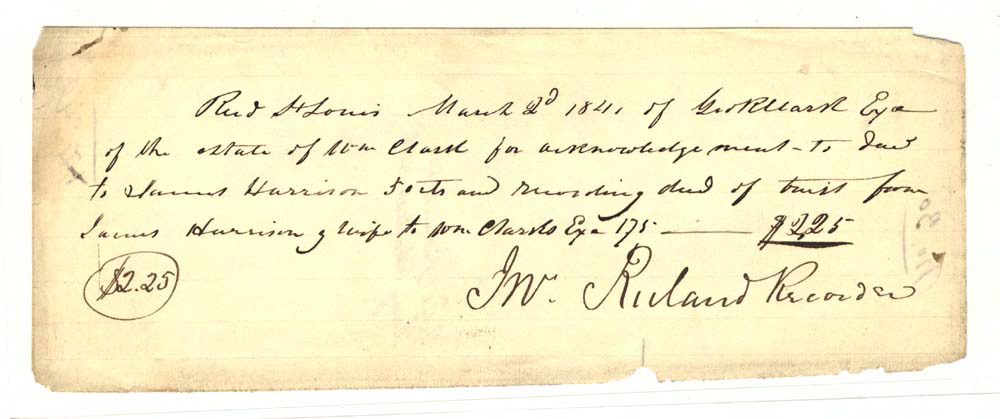 Recd St Louis March 2d 1841 of Geo R Clark Exe
of the estate of Wm Clark for acknowledgement to deed
to James Harrison 50 cts and recording deed of trust from
James Harrison & wife to Wm Clarks Exe 175 — $2,25
$2.25
Jno. Ruland Recorder